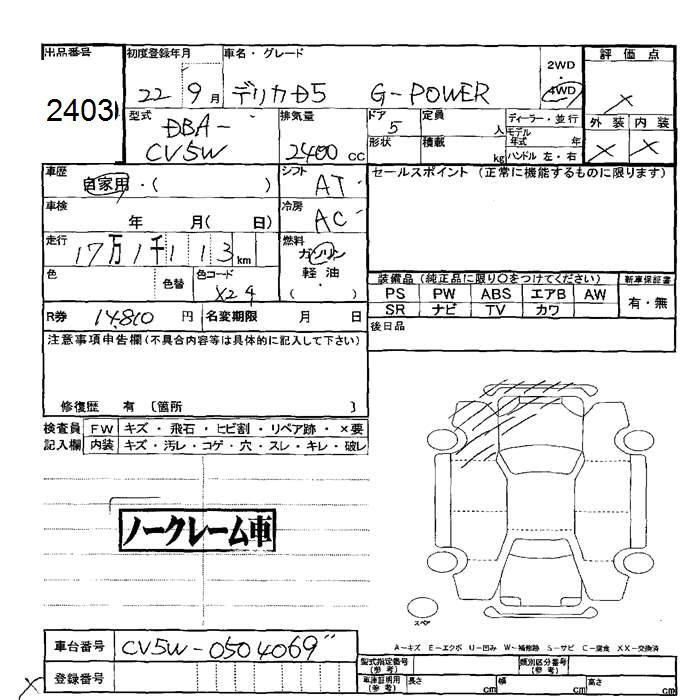 出品番号 初度登録年月 車名・グレード 2WD ・ 4WD 評価点
2403 22 9月 デリカD5 G-POWER ×
型式 DBA-CV5W 排気量 2400 CC ドア 5 定員 人 ディーラー・並行 外装 内装
形状 積載 kg モデル年式 年 ハンドル 左・右 × ×
車歴 自家用・( ) シフト AT セールスポイント (正常に機能するものに限ります)
車検 年 月( 日) 冷房 AC
走行 17万1千113km 燃料 ガソリン・軽油・( )
色 色替 色コード X24
装備品 (純正品に限り○をつけてください) 新車保証書
PS PW ABS エアB AW 有・無
SR ナビ TV カワ
R券 14810 円 名変期限 月 日 後日品
注意事項申告欄(不具合内容等は具体的に記入して下さい)
修復歴 有 〔箇所 〕
検査員 FW キズ・飛石・ヒビ割・リペア跡・×要
記入欄 内装 キズ・汚レ・コゲ・穴・スレ・キレ・破レ
ノークレーム車
スペア
車台番号 CV5W-0504069
A～キズ E～エクボ U～凹み W～補修跡 S～サビ C～腐食 XX～交換済
登録番号
型式指定番号(参考) 類別区分番号(参考)
車庫証明用(参考) 長さ cm 幅 cm 高さ cm